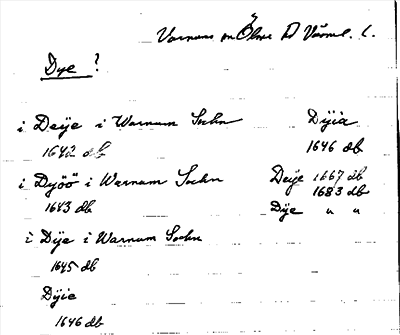 Varnums sn Ölme hd Värml. l.
Dye ?
i Deÿe i Warnum Sochn
1642 db
i Dyöö i Warnum Sochn
1643 db
i Dÿe i Warnum Sochn
1645 db
Dÿie
1646 db
Dÿia
1646 db
Deije 1667 db
1683 db
Dÿe " "